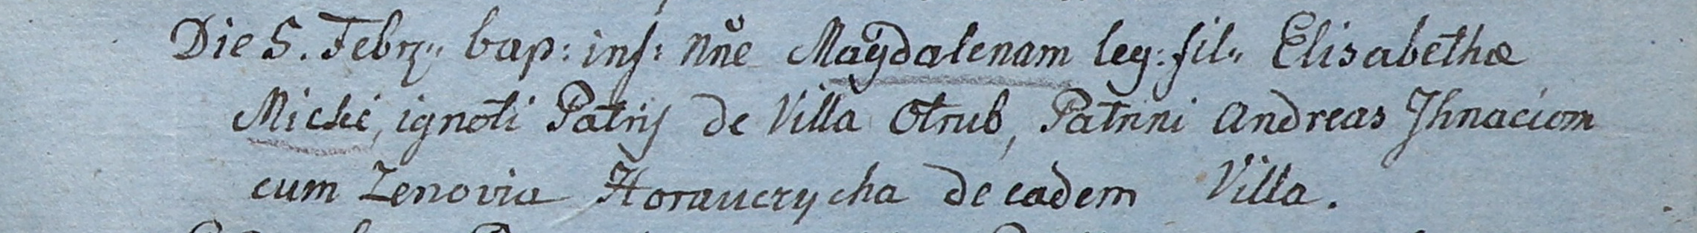 Die 5. Febr: bap: inf: nñe Magdalenam leg: fil: Elisabethæ
Micki, ignoti Patris de Villa Otrub, Patrini Andreas Ihnaciom
cum Zenovia Horauczycha de eadem Villa.